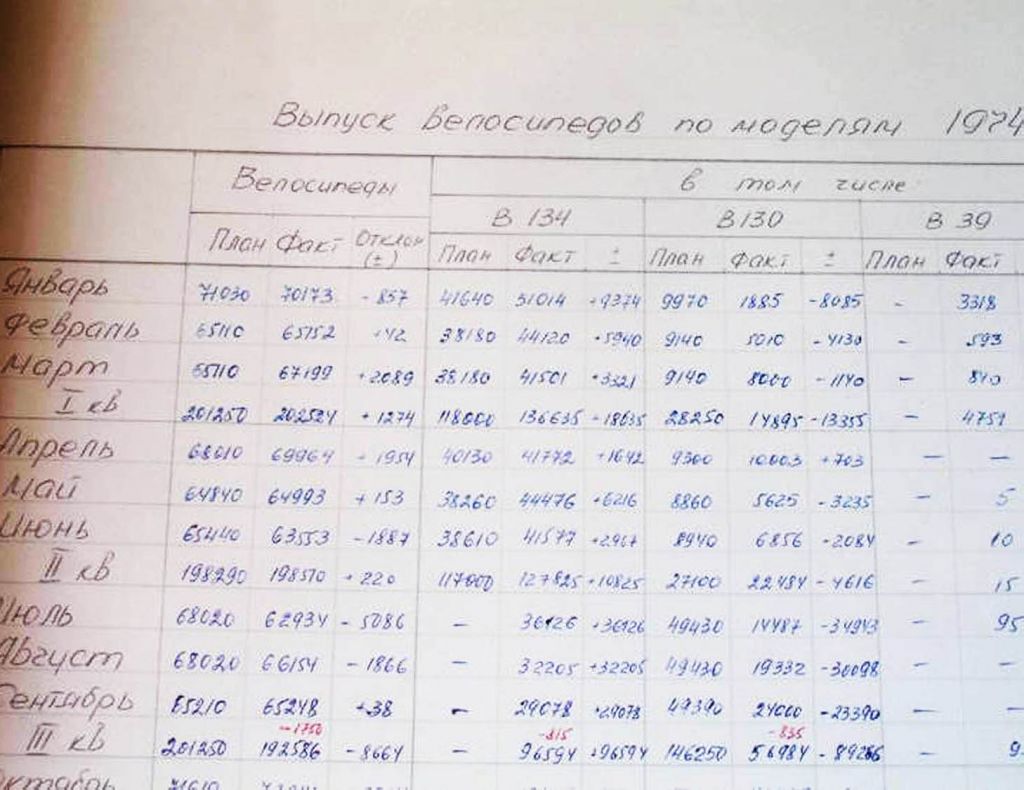 Выпуск велосипедов по моделям 1974
Велосипеды в том числе
В 134 В 130 В 39
План Факт Отклон (±) План Факт ± План Факт ± План Факт
Январь 71030 70173 -857 41640 51014 +9374 9970 1885 -8085 - 3318
Февраль 65110 65152 +42 38180 44120 +5940 9140 5010 -4130 - 593
Март 65110 67199 +2089 38180 41501 +3321 9140 8000 -1140 - 840
I кв 201250 202524 +1274 118000 136635 +18635 28250 14895 -13355 - 4751
Апрель 68010 69964 +1954 40130 41772 +1642 9300 10003 +703 - -
Май 64840 64993 +153 38260 44476 +6216 8860 5625 -3235 - 5
Июнь 65440 63553 -1887 38610 41577 +2967 8940 6856 -2084 - 10
II кв 198290 198510 +220 117000 127825 +10825 27100 22484 -4616 - 15
Июль 68020 62934 -5086 - 36126 +36126 49430 14487 -34943 - 95
Август 68020 66154 -1866 - 32205 +32205 49430 19332 -30098 - -
Сентябрь 65210 65248 +38 - 29078 +29078 49390 24000 -23390 - -
-1750 -815 -835
III кв 201250 192586 -8664 - 96594 +96594 146250 56984 -89266 - 9